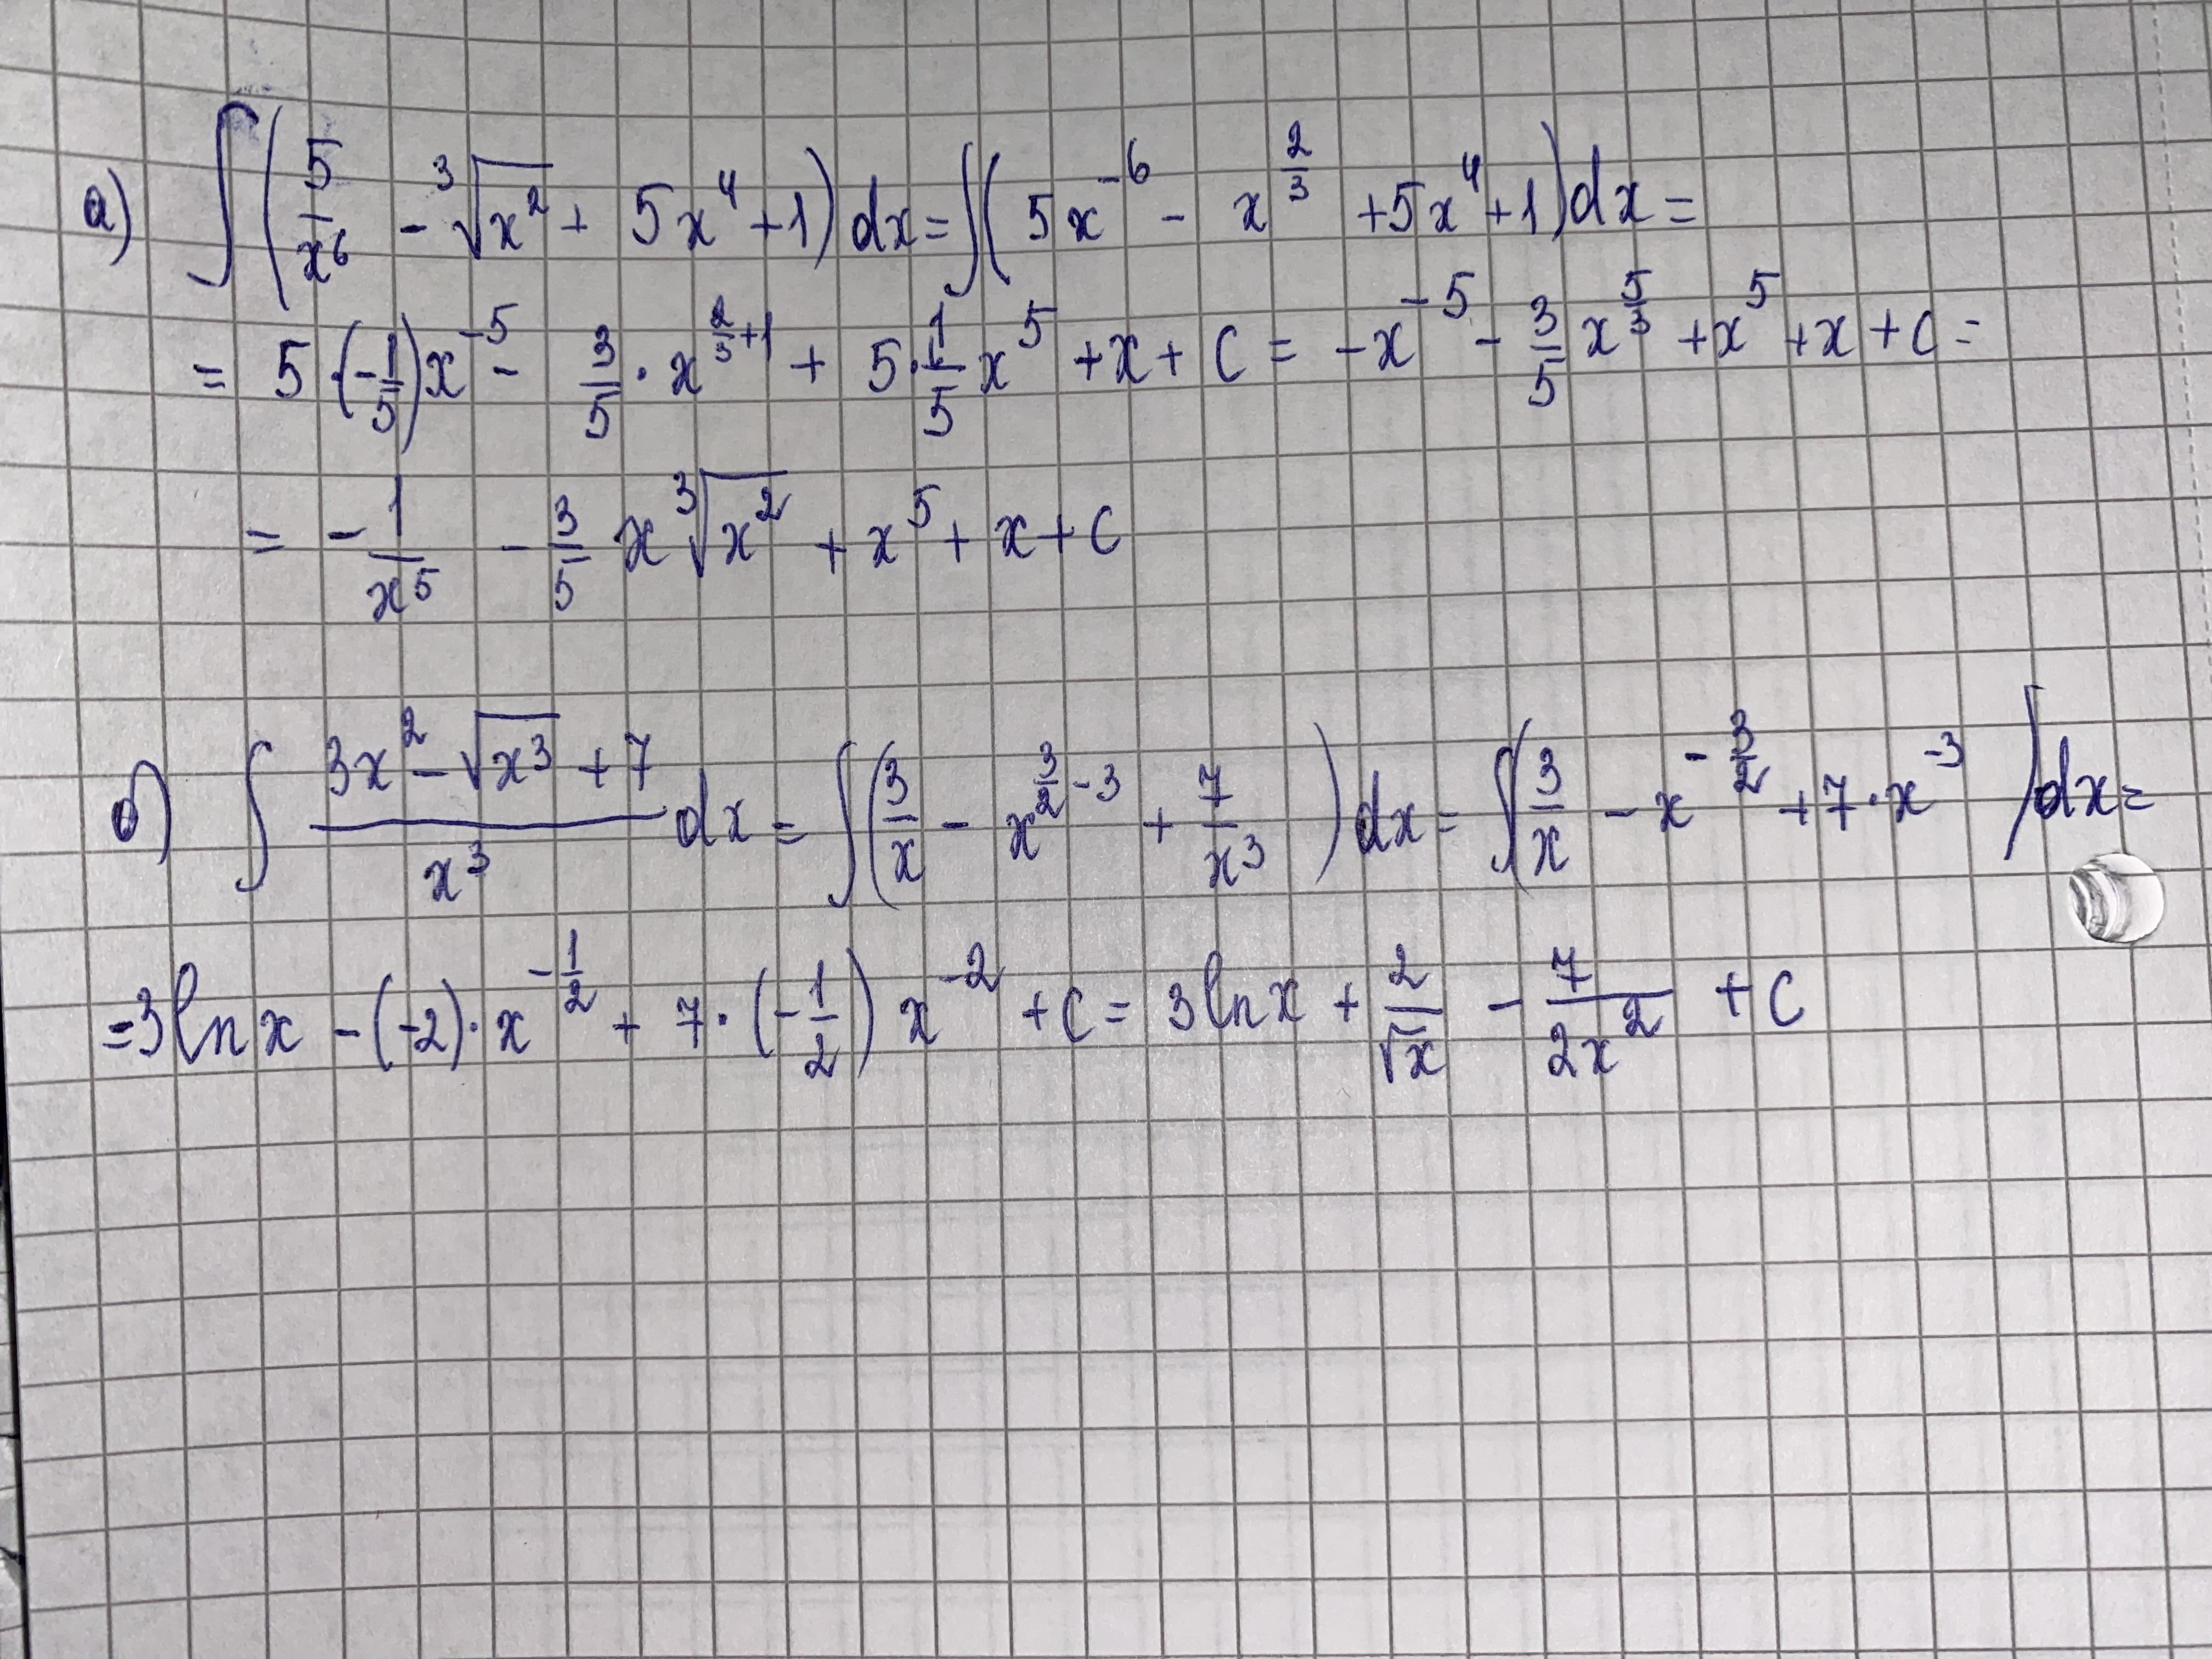 а) ∫(5/x⁶ - ∛(x²) + 5x⁴ + 1)dx = ∫(5x^(-6) - x^(2/3) + 5x⁴ + 1)dx =
= 5·(-1/5)x^(-5) - 3/5 · x^(2/3+1) + 5·1/5 x⁵ + x + C = -x^(-5) - 3/5 x^(5/3) + x⁵ + x + C =
= -1/x⁵ - 3/5 x∛(x²) + x⁵ + x + C
б) ∫ (3x² - √(x³) + 7)/x³ dx = ∫(3/x - x^(3/2-3) + 7/x³)dx = ∫(3/x - x^(-3/2) + 7·x^(-3))dx =
= 3ln x - (-2)·x^(-1/2) + 7·(-1/2)x^(-2) + C = 3ln x + 2/√x - 7/(2x²) + C